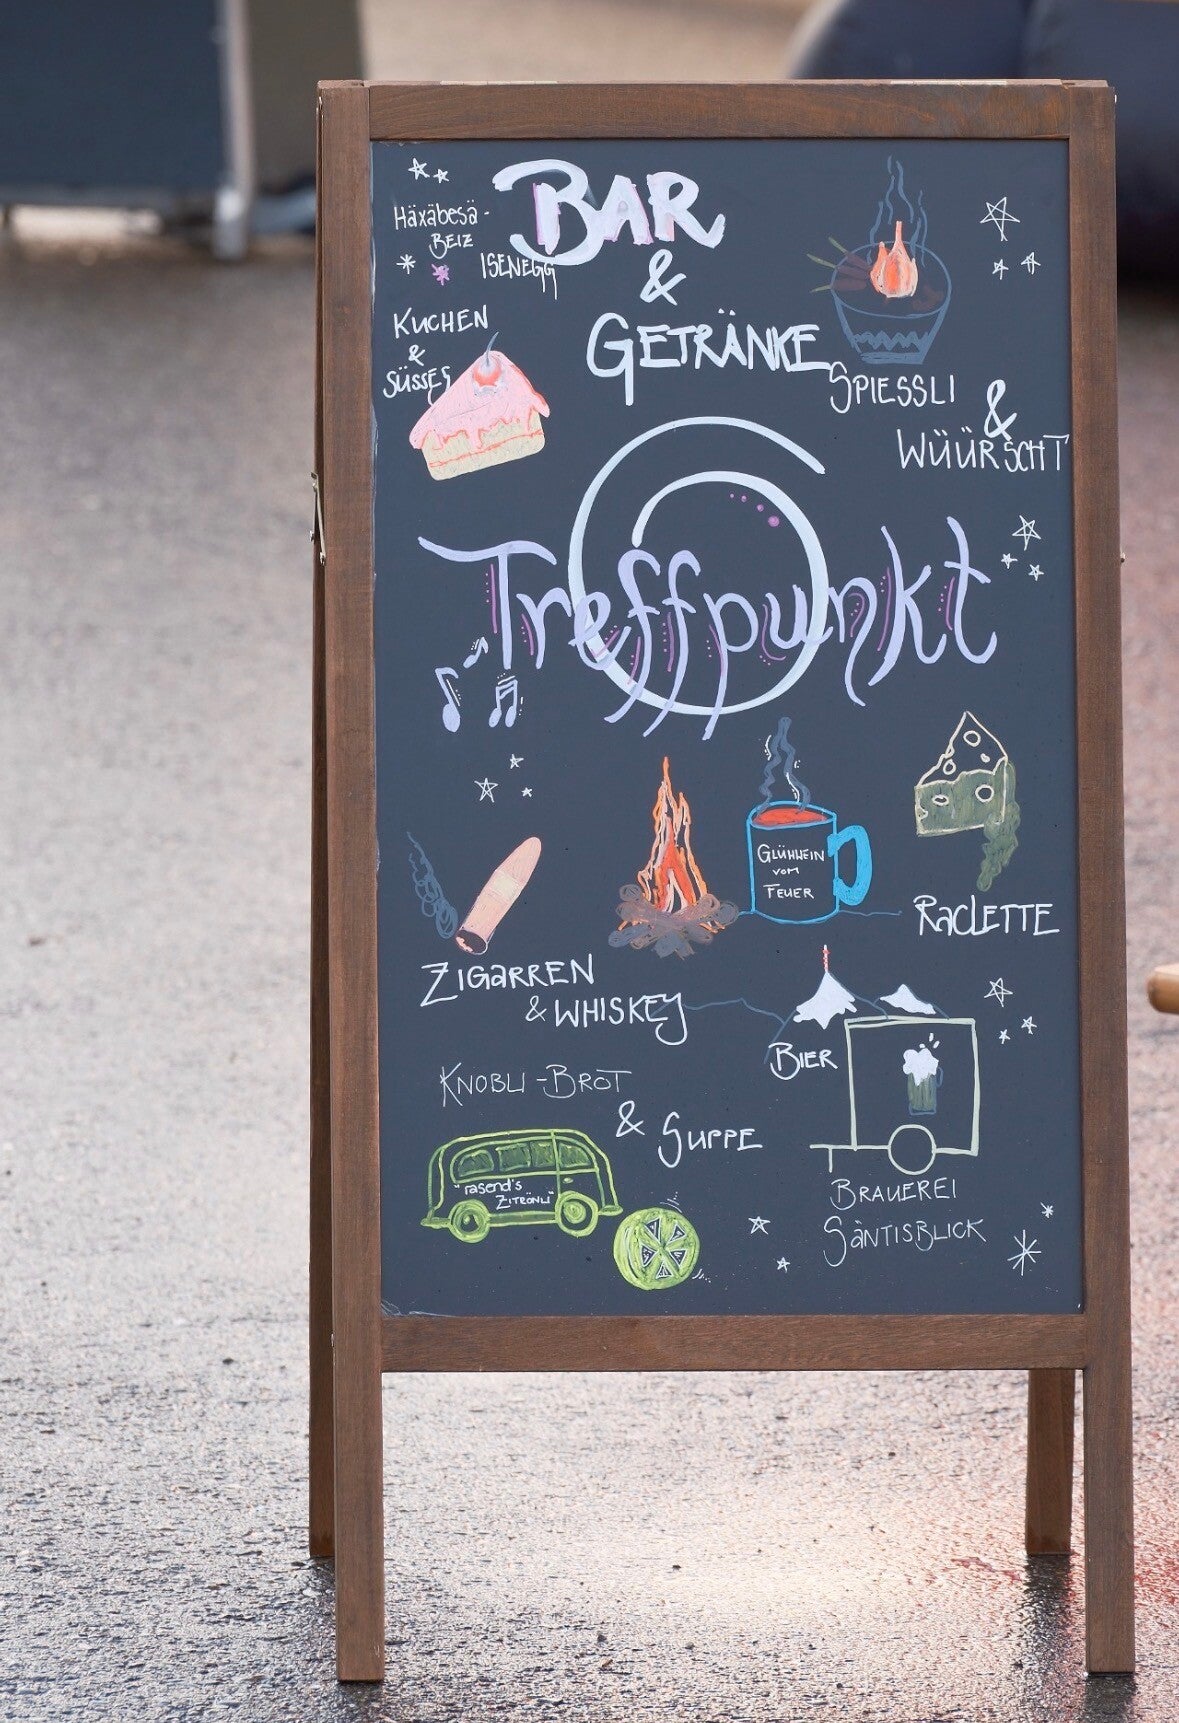 Häxäbesä-
Beiz
Isenegg
Bar
&
Getränke
Kuchen
&
Süsses
Spiessli
&
Wüürscht
Treffpunkt
Glühwein
vom
Feuer
Raclette
Zigarren
& Whiskey
Bier
Knobli-Brot
& Suppe
"rasend's
Zitrönli"
Brauerei
Säntisblick